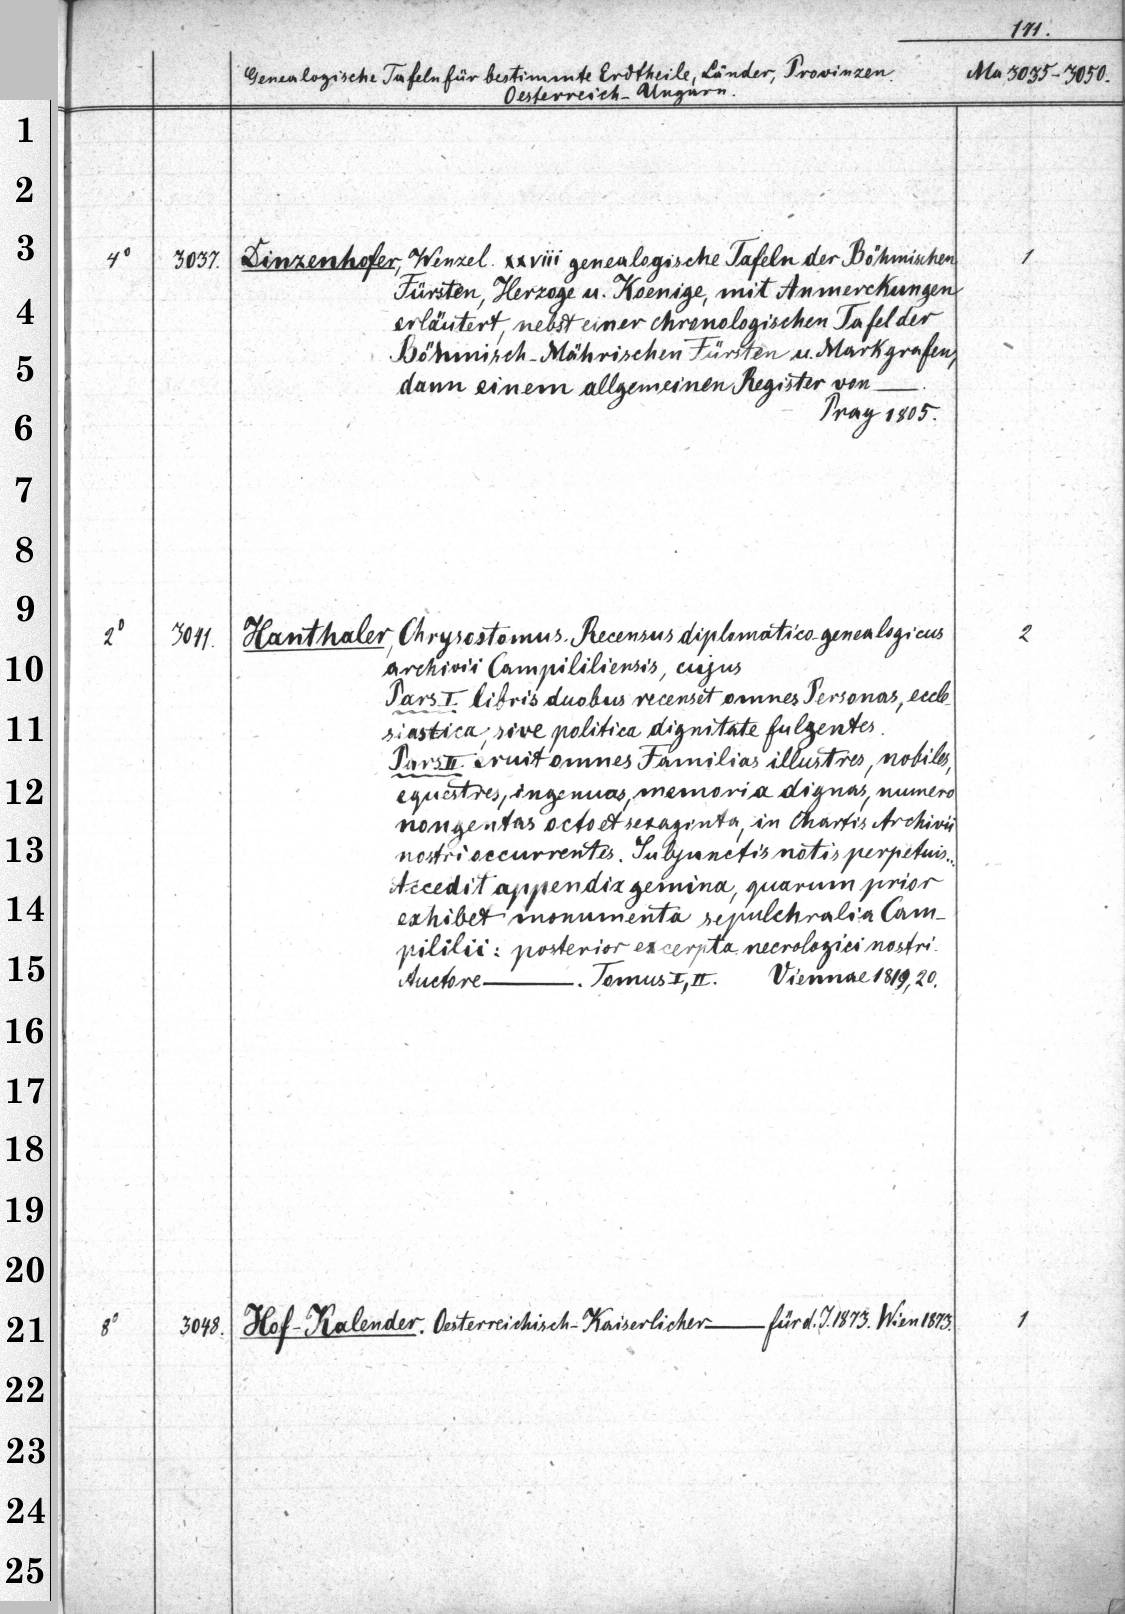 171.
Genealogische Tafeln für bestimmte Erdtheile, Länder, Provinzen.
Ma 3035-3050.
Oesterreich-Ungarn.
1
2
3
4
5
6
7
8
9
10
11
12
13
14
15
16
17
18
19
20
21
22
23
24
25
4° 3037. Dinzenhofer, Wenzel. xxviii genealogische Tafeln der Böhmischen 1
Fürsten, Herzoge u. Koenige, mit Anmerckungen
erläutert, nebst einer chronologischen Tafel der
Böhmisch-Mährischen Fürsten u. Markgrafen,
dann einem allgemeinen Register von —.
Prag 1805.
2° 3041. Hanthaler, Chrysostomus. Recensus diplomatico-genealogicus 2
archivii Campililiensis, cujus
Pars I. libris duobus recenset omnes Personas, eccle-
siastica, sive politica dignitate fulgentes.
Pars II. eruit omnes Familias illustres, nobiles,
equestres, ingenuas, memoria dignas, numero
nongentas octo et sexaginta, in Chartis Archivii
nostri occurrentes. Subjunctis notis perpetuis...
Accedit appendix gemina, quarum prior
exhibet monumenta sepulchralia Cam-
pililii: posterior excerpta necrologici nostri.
Auctore —. Tomus I, II. Viennae 1819, 20.
8° 3048. Hof-Kalender. Oesterreichisch-Kaiserlicher — für d. J. 1873. Wien 1873. 1